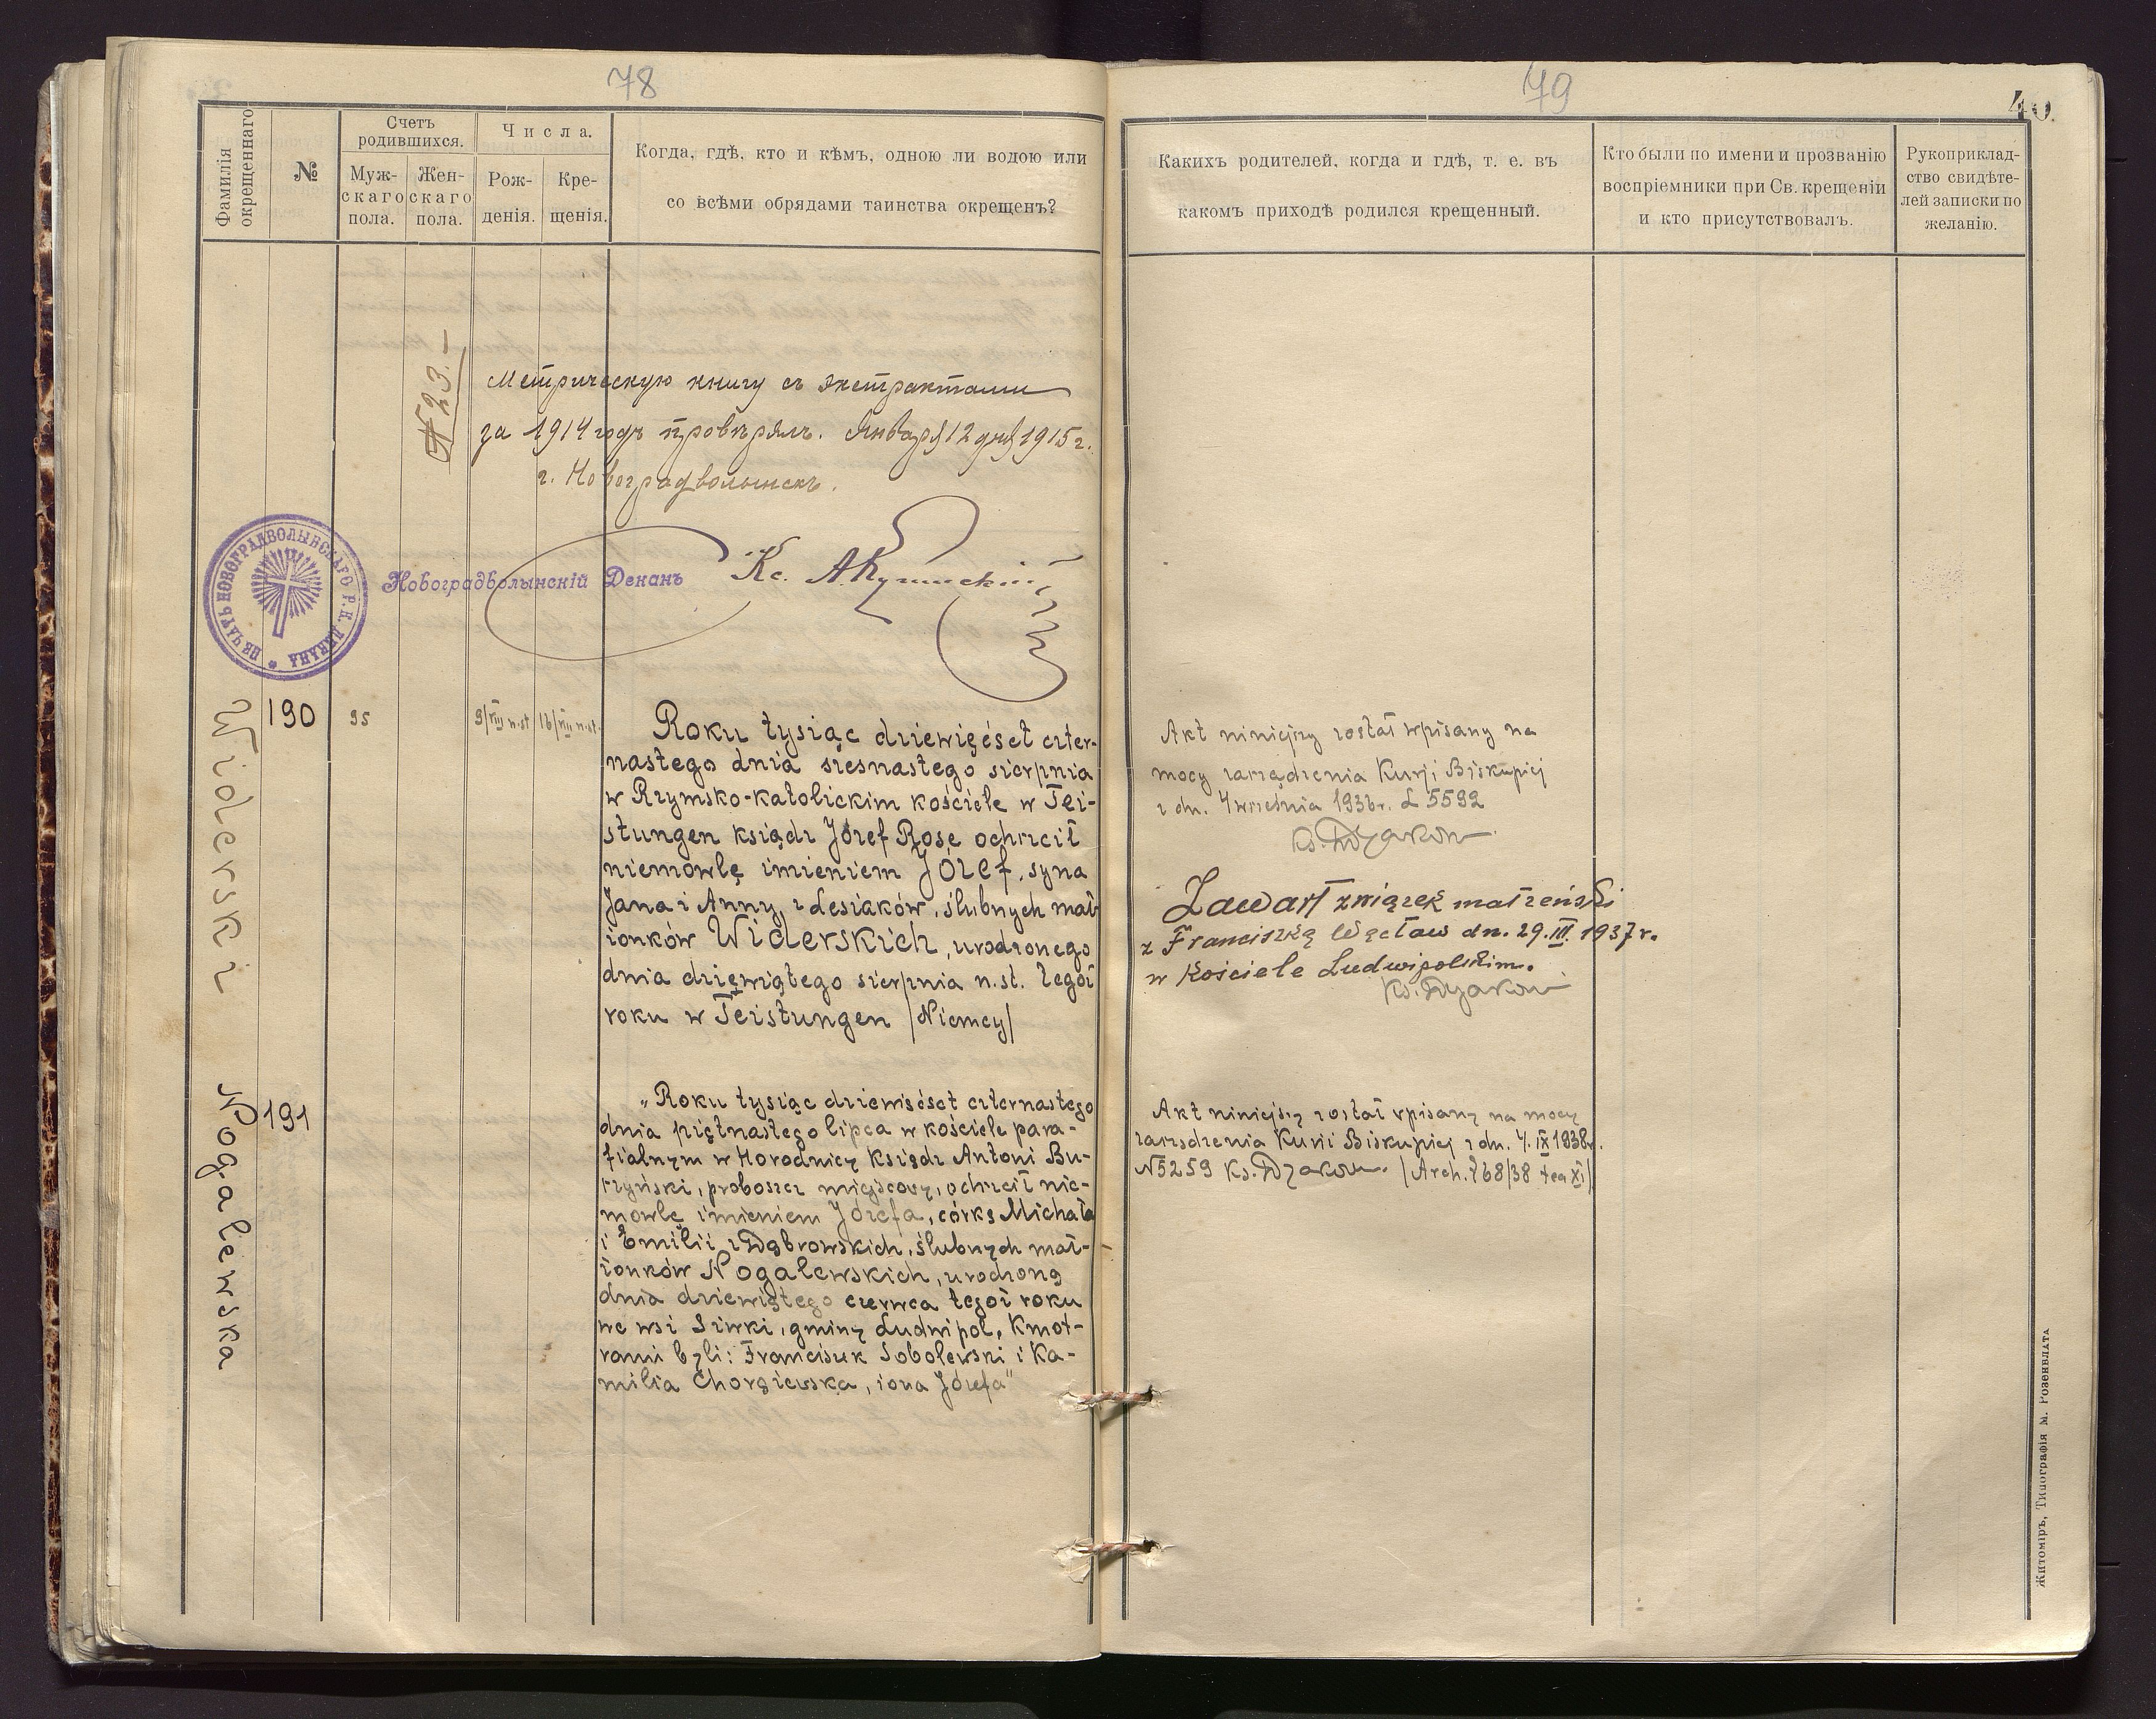 78
Фамилія
окрещеннаго
№
Счетъ
родившихся.
Муж-
скаго
пола.
Жен-
скаго
пола.
Числа.
Рож-
денія.
Кре-
щенія.
Когда, гдѣ, кто и кѣмъ, одною ли водою или
со всѣми обрядами таинства окрещенъ?
N 23.-
Метрическую книгу съ экстрактами
за 1914 годъ провѣрялъ. Января 12 дня 1915 г.
г. Новоградволынскъ.
ПЕЧАТЬ НОВОГРАДВОЛЫНСКАГО Р. К. ДЕКАНА
Новоградволынскій Деканъ
Кс. А.
Widerski
190
95
9/VIII n.st
16/VIII n.st.
Roku tysiąc dziewięćset czter-
nastego dnia szesnastego sierpnia
w Rzymsko-katolickim kościele w Tei-
stungen ksiądz Józef Rose ochrzcił
niemowlę imieniem Józef, syna
Jana i Anny, z Lesiaków, ślubnych mał-
żonków Widerskich, urodzonego
dnia dziewiątego sierpnia n.st. tegoż
roku w Teistungen /Niemcy/
Nogalewska
191
„Roku tysiąc dziewięćset czternastego
dnia piętnastego lipca w kościele para-
fialnym w Horodnicy ksiądz Antoni Bu-
rzyński, proboszcz miejscowy, ochrzcił nie-
mowlę imieniem Józefa, córkę Michała
i Emilii z Dąbrowskich, ślubnych mał-
żonków Nogalewskich, urodzoną
dnia dziewiątego czerwca tegoż roku
we wsi Siwki, gminy Ludwipol. Kmot-
rami byli: Franciszek Sobolewski i Ka-
milia Chorążewska, żona Józefa"
79
40.
Какихъ родителей, когда и гдѣ, т. е. въ
какомъ приходѣ родился крещенный.
Кто были по имени и прозванію
воспріемники при Св. крещеніи
и кто присутствовалъ.
Рукоприклад-
ство свидѣте-
лей записки по
желанію.
Akt niniejszy został wpisany na
mocy zarządzenia Kurji Biskupiej
z dn. 4 września 1936r. L 5592
Ks. Dyakow
Zawarł związek małżeński
z Franciszką Węcław dn. 29.III.1937r.
w Kościele Ludwipolskim.
Ks. Dyakow
Akt niniejszy został wpisany na mocy
zarządzenia Kurii Biskupiej z dn. 4.IX 1938r.
N5259 Ks. Dyakow. /Arch. 268/38 XI/
Житоміръ, Типографія М. Розенблата